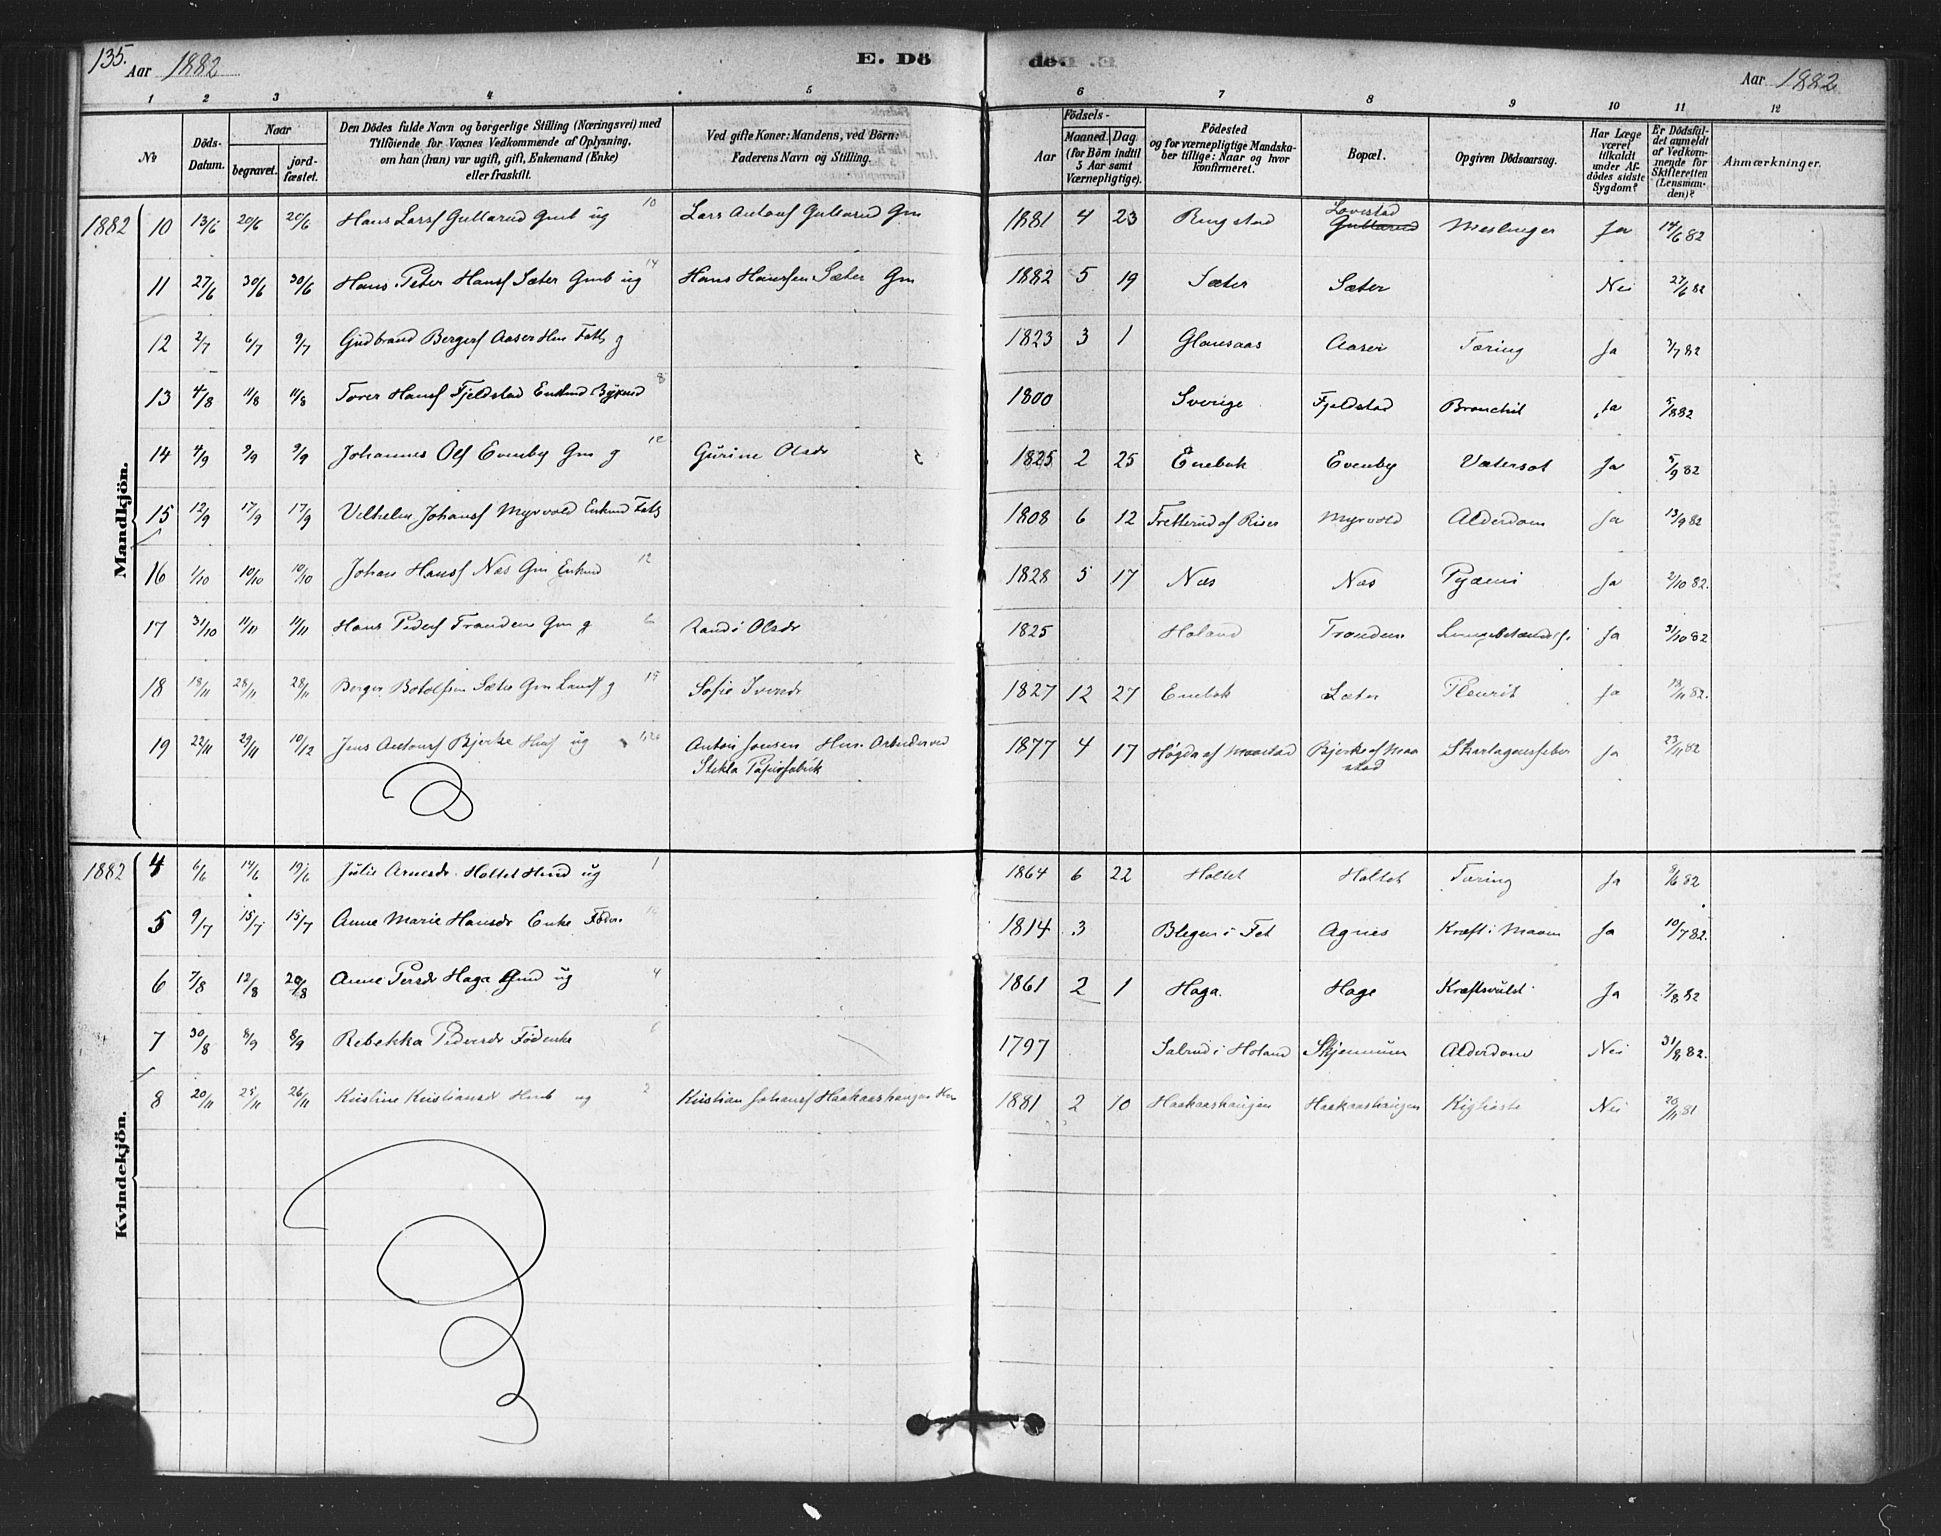 135.
Aar 1882
E. Dö
de.
Aar 1882
1 2 3 4 5 6 7 8 9 10 11 12
No
Döds-Datum.
Naar
begravet.
jord-fæstet.
Den Dödes fulde Navn og borgerlige Stilling (Næringsvei) med
Tilföiende for Voxnes Vedkommende af Oplysning,
om han (hun) var ugift, gift, Enkemand (Enke)
eller fraskilt.
Ved gifte Koner: Mandens, ved Börn:
Faderens Navn og Stilling.
Födsels-
Aar
Maaned.
Dag
(for Börn indtil
5 Aar samt
Værnepligtige).
Födested
og for værnepligtige Mandska-
ber tillige: Naar og hvor
konfirmeret.
Bopæl.
Opgiven Dödsaarsag.
Har Læge
været
tilkaldt
under Af-
dödes sidste
Sygdom?
Er Dödsfal-
det anmeldt
af Vedkom-
mende for
Skifteretten
(Lensman-
den)?
Anmærkninger.
Mandkjön.
1882 10 13/6 20/6 20/6 Hans Larsf Guttarud Gmb ug 10 Lars Antonf Guttarud Gm 1881 4 23 Ringstad Lovistad Guttarud Meslinger Ja 14/6 82
11 27/6 30/6 30/6 Hans Peter Hansf Sæter Gmb ug 14 Hans Hansen Sæter Gm 1882 5 19 Sæter Sæter Nei 27/6 82
12 2/7 6/7 9/7 Gudbrand Bergerf Aaser Hm Fatt g 1823 3 1 Glansaas Aaser Tæring Ja 3/7 82
13 4/8 11/8 11/8 Tover Hansf Fjeldstad Enkmd 8 1800 Sverige Fjeldstad Bronchit Ja 5/8 82
14 4/9 9/9 9/9 Johannes Olf Evenby Gm g 12 Gurine Olsdr 1825 2 25 Enebak Evenby Vatersot Ja 5/9 82
15 12/9 17/9 17/9 Vilhelm Johansf Myrvold Enkmd Fatt 1808 6 12 Tretterud af Riser Myrvold Alderdom Ja 13/9 82
16 1/10 10/10 10/10 Johan Hansf Næs Gm Enkmd 12 1828 5 17 Næs Næs Pyæmi Ja 2/10 82.
17 31/10 11/11 11/11 Hans Pedersf Tranden Gm g 6 Randi Olsdr 1825 Høland Tranden Ja 31/10 82
18 18/11 28/11 28/11 Berger Botolfsen Sæter Gm g 15 Sofie Iversdr 1827 12 27 Enebak Sæter Pleurit Ja 18/11 82.
19 22/11 29/11 10/12 Jens Antonsf Bjerke Hmf ug Anton Jensen Hm. Arbeider ved 1877 4 17 Høgda af Maastad Bjerke af Maa Skarlagensfeber Ja 23/11 82
Papirfabrik stad
Kvindekjön.
1882 4 6/6 14/6 19/6 Julie Arnesdr Holtet Hmd ug 1 1864 6 22 Holtet Holtet Tæring Ja 8/6 82
5 9/7 15/7 15/7 Anne Marie Hansdr Enke Föder. 1814 3 Blegen i Fet Agnes Kræft i Maven Ja 10/7 82.
6 7/8 12/8 20/8 Anne Persdr Haga Gmd ug 4 1861 2 1 Haga. Haga Kræftsvulst Ja 7/8 82
7 30/8 8/9 8/9 Rebekka Pedersdr Födenke 6 1797 Salrud i Høland Skjennum Alderdom Nei 31/8 82.
8 20/11 25/11 26/11 Kristine Kristiansdr Hmb ug 2 Kristian Johansf Haakaashaugen Hm 1881 2 10 Haakaashaugen Haakaashaugen Kighoste Nei 20/11 81